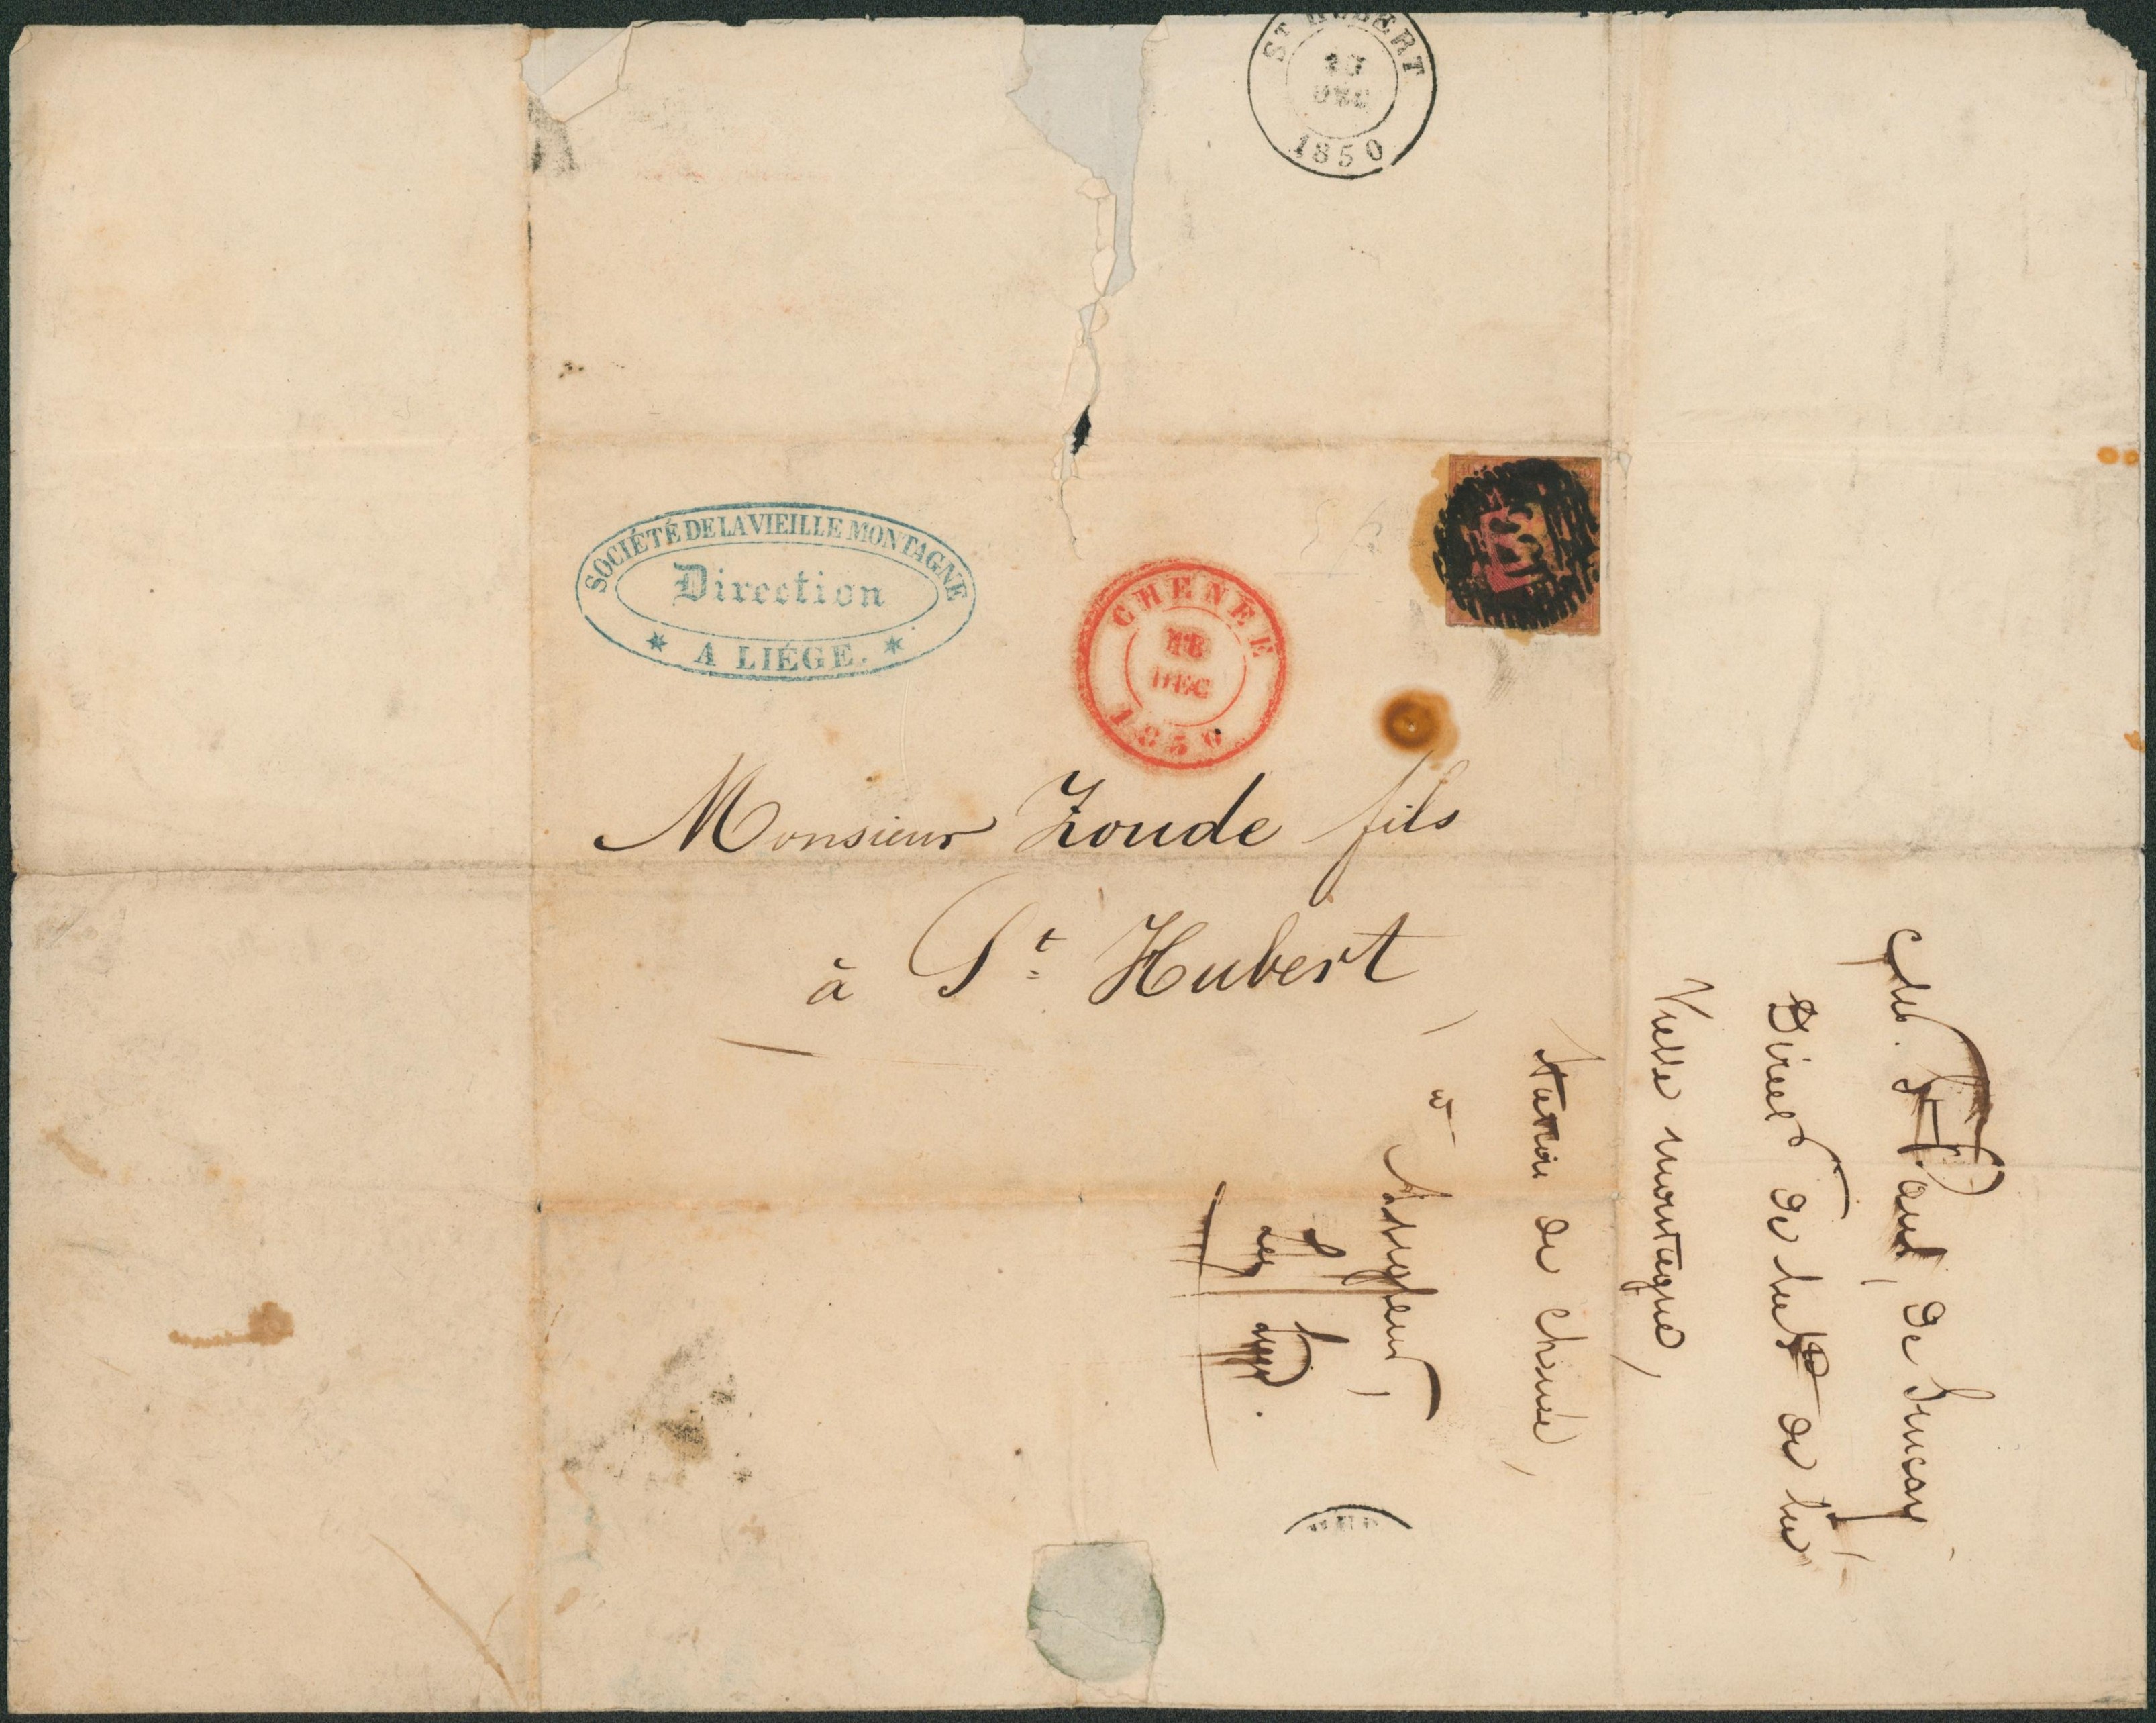 St HUBERT
DEC
1850
SOCIÉTÉ DE LA VIEILLE MONTAGNE
Direction
A LIÉGE.
CHENEE
18
DEC
1850
Monsieur Zoude fils
à St Hubert
Paul, de
de la
Vielle montagne,
de chenée,
à Angleur,